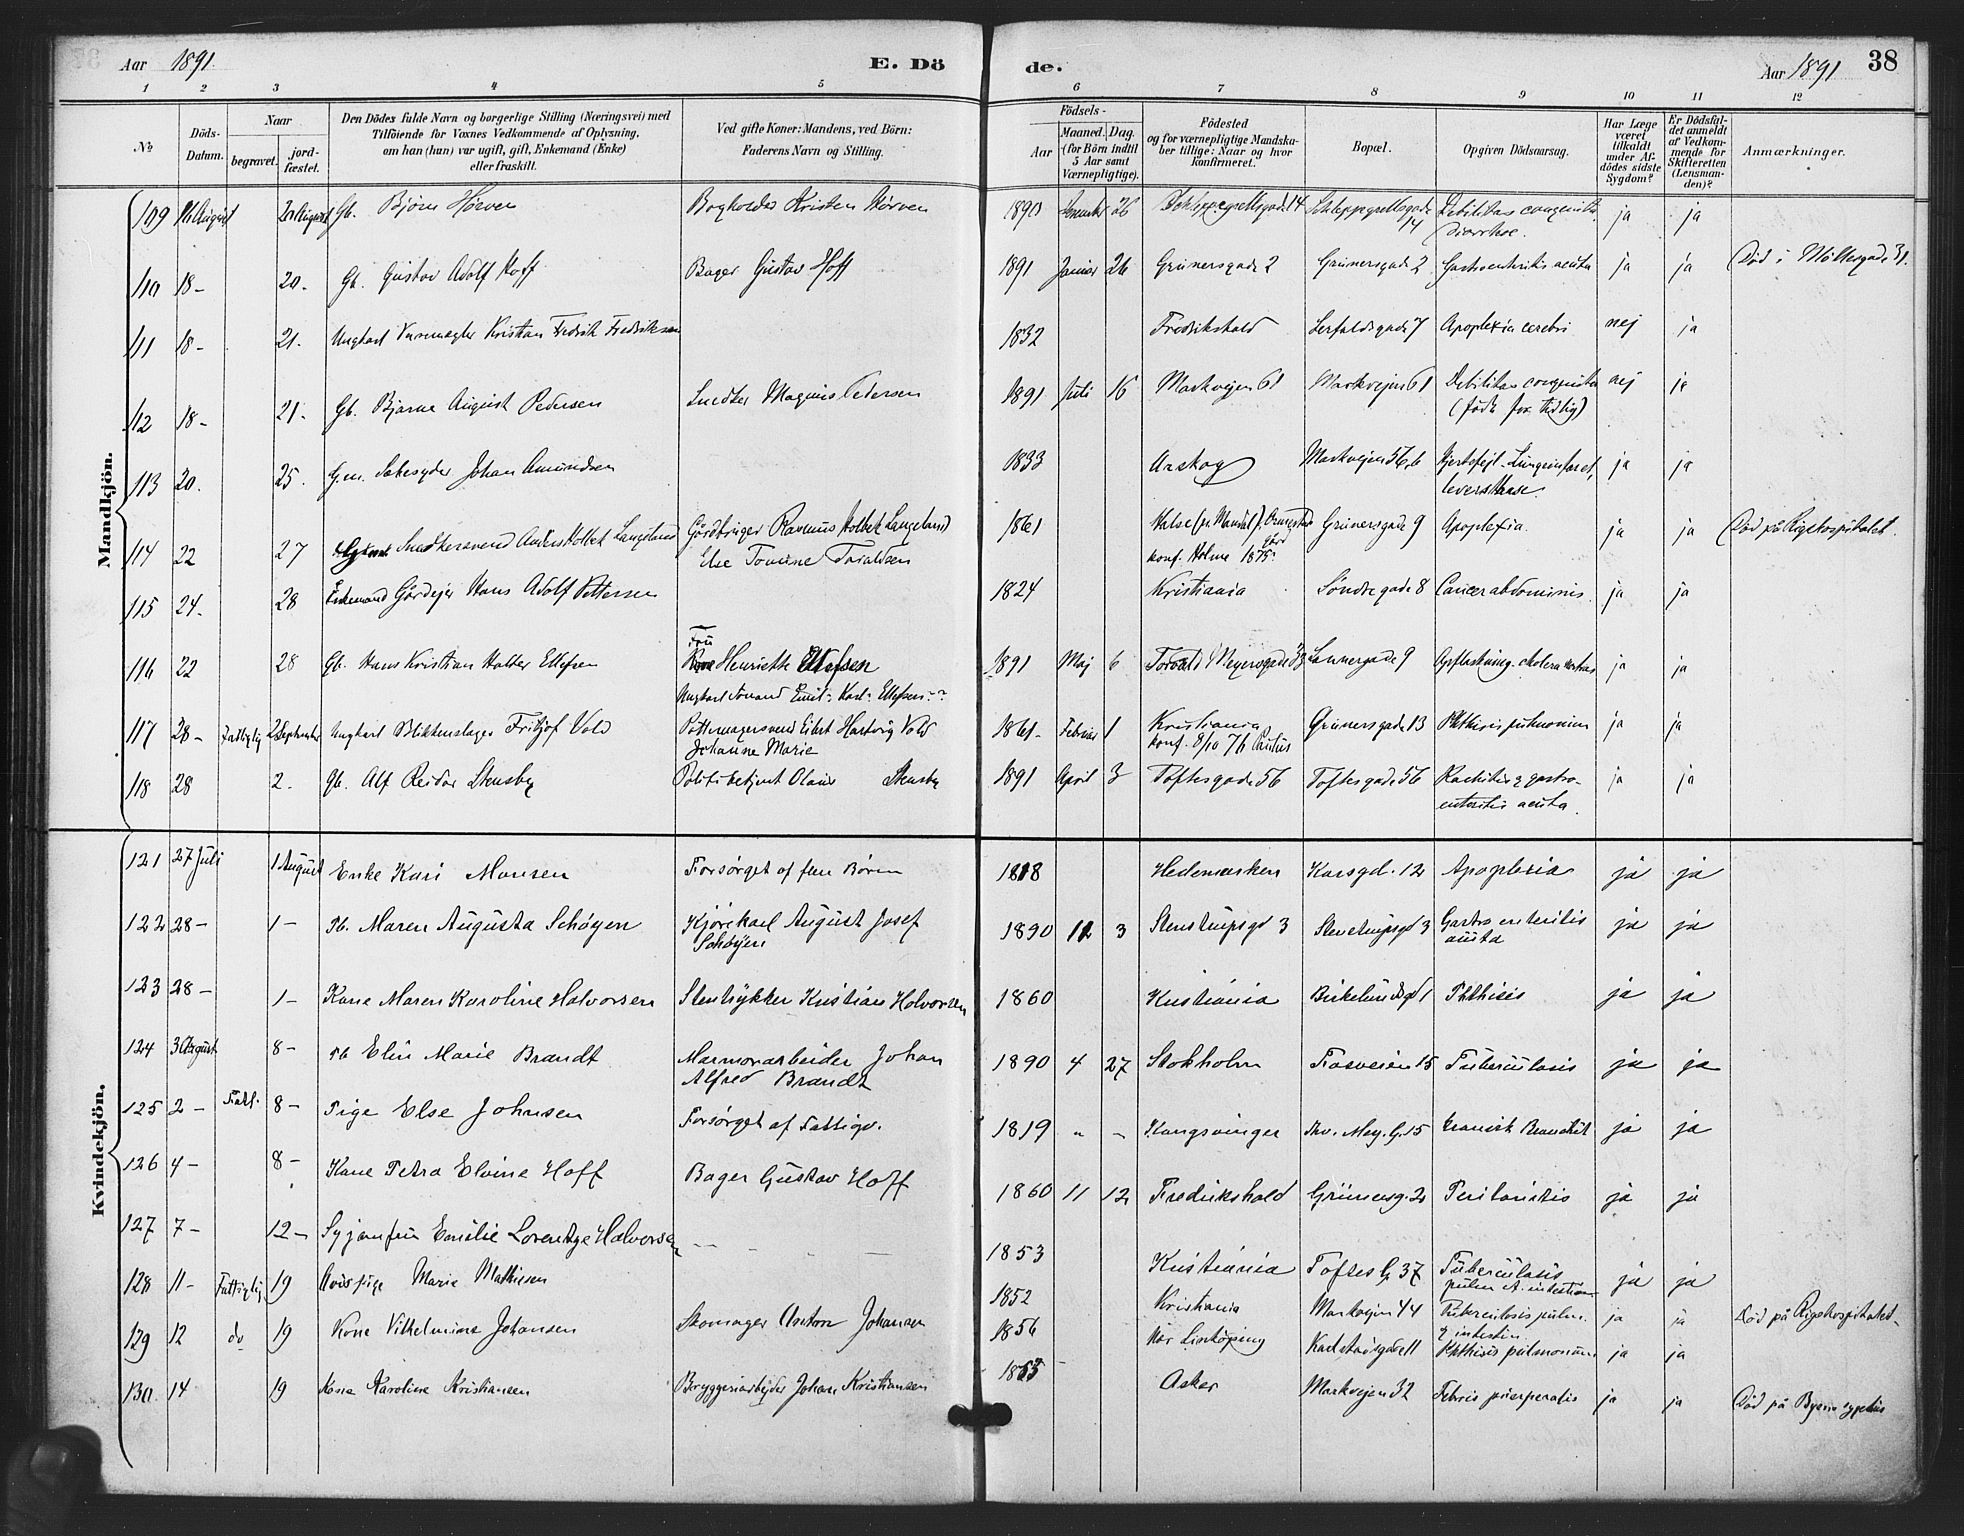 Aar 1891. E. Dö de. Aar 1891 38
1 2 3 4 5 6 7 8 9 10 11 12
№
Döds-Datum.
Naar
begravet. jordfæstet.
Den Dödes fulde Navn og borgerlige Stilling (Næringsvei) med
Tilföiende for Voxnes Vedkommende af Oplysning,
om han (hun) var ugift, gift, Enkemand (Enke)
eller fraskilt.
Ved gifte Koner: Mandens, ved Börn:
Faderens Navn og Stilling.
Födsels-
Aar Maaned. Dag.
(for Börn indtil
5 Aar samt
Værnepligtige).
Födested
og for værnepligtige Mandskaber
tillige: Naar og hvor
konfirmeret.
Bopæl.
Opgiven Dödsaarsag.
Har Læge
været
tilkaldt
under Afdödes
sidste
Sygdom?
Er Dödsfaldet
anmeldt
af Vedkommende
for
Skifteretten
(Lensmanden)?
Anmærkninger.
Mandkjön.
109 August 20 August Gb. Bjørn Hørven Bogholder Kristen Hørven 1890 26 Schleppegrellsgade 14 Schleppegrellsgade 14 Debilitas congenita Diarrhoe. ja ja
110 18- 20. Gb. Gustav Adolf Hoff Bager Gustav Hoff 1891 Januar 26 Grünersgade 2 Grünersgade 2 Gastroenteritis acuta ja ja Död i Möllergade 31.
111 18- 21. Ungkarl Kristian Fredrik Fredriksen 1832 Fredrikshald 7 Apoplexia cerebri nej ja
112 18- 21- Gb. Bjarne August Pedersen Snedker Magnus Pedersen 1891 Juli 16 Markvejen 61 Markvejen 61 Debilitas congenita (født for tidlig) nej ja
113 20. 25. G.m. Johan Amundsen 1833 Markvejen 56,b Hjertefejl ja ja
114 22 27 Snedkersvend Anders Holbek Langeland Gårdbruger Rasmus Holbek Langeland 1861 Halse (pr Mandal) Grünersgade 9 Apoplexia. ja ja Död på Rigshospitalet.
Else Tomine Toraldsen konf. Holme 1875.
115 24. 28 Enkemand Gårdejer Hans Adolf Pettersen 1824 Kristiania Søndre gade 8 Cancer abdominis. ja ja
116 22 28 Gb. Hans Kristian Holter Ellefsen Fru Henriette Ellefsen 1891 Maj 6 Torvald Meyersgade 33 9 ja ja
Ungkarl Emil Karl Ellefsen
117 28- Fattiglig 2 September Ungkarl Blikkenslager Fritjof Vold Pottemagersvend Eilert Hartvig Vold 1861- Februar 1 Kristiania Grünersgade 13 Phthisis pulmonum ja ja
Johanne Marie konf. 8/10 76 Paulus
118 28 2. gb. Alf Reidar Stensby Politibetjent Olaus Stensby 1891 April 3 Toftesgade 56 Toftesgade 56 Rachitis & gastroenteritis acuta. ja ja
Kvindekjön.
121 27 Juli 1 August Enke Kari Monsen Forsørget af sine Børn 1818 Hedemarken Korsgd. 12 Apoplexia ja ja
122 28- 1- Pb. Maren Augusta Schøyen Kjørekarl August Josef Schøyen 1890 12 3 Stenstrupsgd 3 Stenstrupsgd 3 Gastro enteritis acuta ja ja
123 28- 1- Kone Maren Karoline Halvorsen Stentrykker Kristian Halvorsen 1860 Kristiania Birkelundsgd 1 Phthisis ja ja
124 3 August 8- Pb Elin Marie Brandt Marmorarbeider Johan Alfred Brandt 1890 4 27 Stokholm Fosveien 15 Tuberculosis ja ja
125 2- Fatt. 8- Pige Else Johnsen Forsørget af Fattigv. 1819 " - Kongsvinger Thv. Mey. G. 15 kronisk Bronchit ja ja
126 4- 8- Kone Petra Elvine Hoff Bager Gustav Hoff 1860 11 12 Fredrikshald Grünersg. 2 Peritonitis ja ja
127 7- 12- Syjomfru Emilie Lorentze Halvorsen 1853 Kristiania Toftes G 37 Tuberculosis pulm et. intestin ja ja
128 11- Fattiglig 19 pige Marie Mathiesen 1852 Kristiania Markvejen 44 Tuberculosis pulm. & intestin ja ja Död på Rigshospitalet.
129 12 do 19 Kone Vilhelmine Johansen Skomager Anton Johansen 1856 Linköping Karlstadsgade 11 Phthisis pulmonum ja ja
130. 14 19 Kone Karoline Kristiansen Bryggeriarbejder Johan Kristiansen Asker Markvejen 32 Febris puerperalis ja ja Död på Byens sygehus